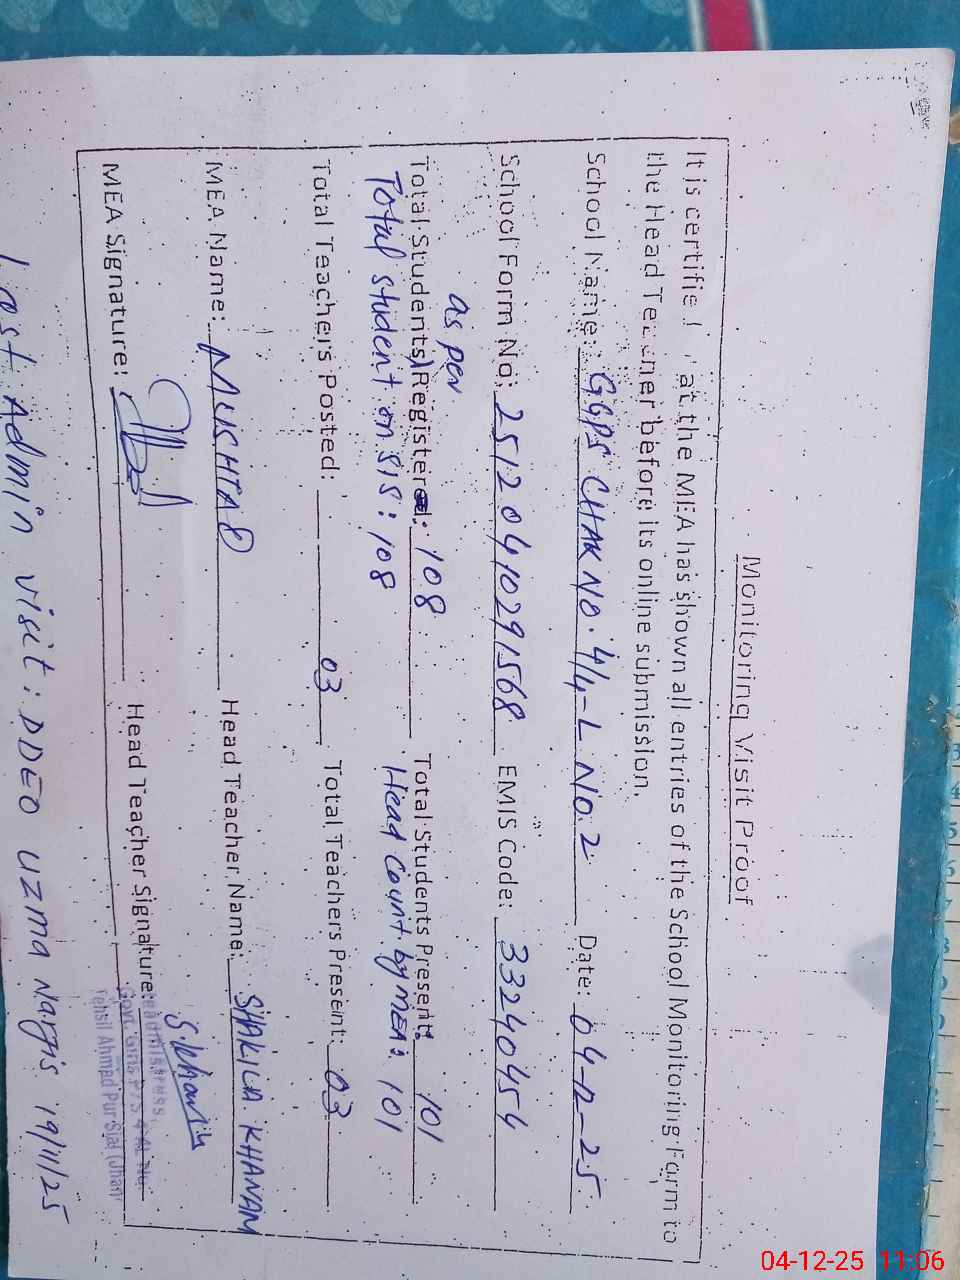 Monitoring Visit Proof
It is certifie at the MEA has shown all entries of the School Monitoring Form to
the Head Teacher before its online submission.
School Name: GGPS CHAK NO. 4/4-L NO. 2 Date: 04-12-25
School Form No: 25120410291568 EMIS Code: 33240454
as per
Total Students Register: 108 Total Students Present: 101
Total student on SIS: 108 Head Count by MEA: 101
Total Teachers Posted: 03 Total Teachers Present: 03
MEA Name: MUSHTAQ Head Teacher Name: SHAKILA KHANAM
MEA Signature: Head Teacher Signature:
Headmistress
Govt. Girls P/S 4/4L No.
Tehsil Ahmad Pur Sial (Jhang
Last Admin visit: DDEO UZMA Nargis 19/11/25
04-12-25 11:06